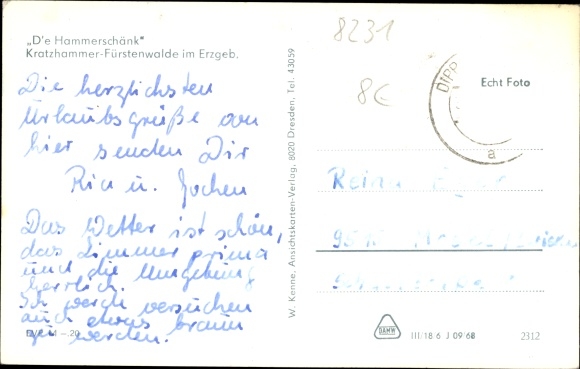 „D'e Hammerschänk"
Kratzhammer-Fürstenwalde im Erzgeb.
Die herzlichsten
Urlaubsgrüße von
hier senden Dir
Ria u. Jochen
Das Wetter ist schön,
das Zimmer prima
und die Umgebung
herrlich.
Ich werde versuchen
auch etwas braun
zu werden.
20
W. Kenne, Ansichtskarten-Verlag, 8020 Dresden, Tel. 43059
8231
8€
Echt Foto
DIPP
a
DAMW
III/18 6 J 09/68
2312